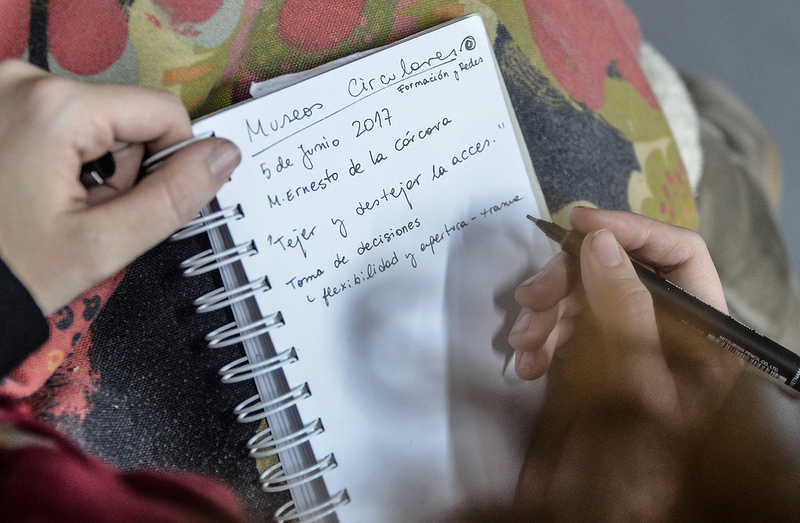 Museos Circulares
Formación y Redes
5 de Junio 2017
M. Ernesto de la Cárcova
"Tejer y destejer la acces."
Toma de decisiones
flexibilidad y apertura - trama
MITSUBISHI PENCIL CO., LTD.